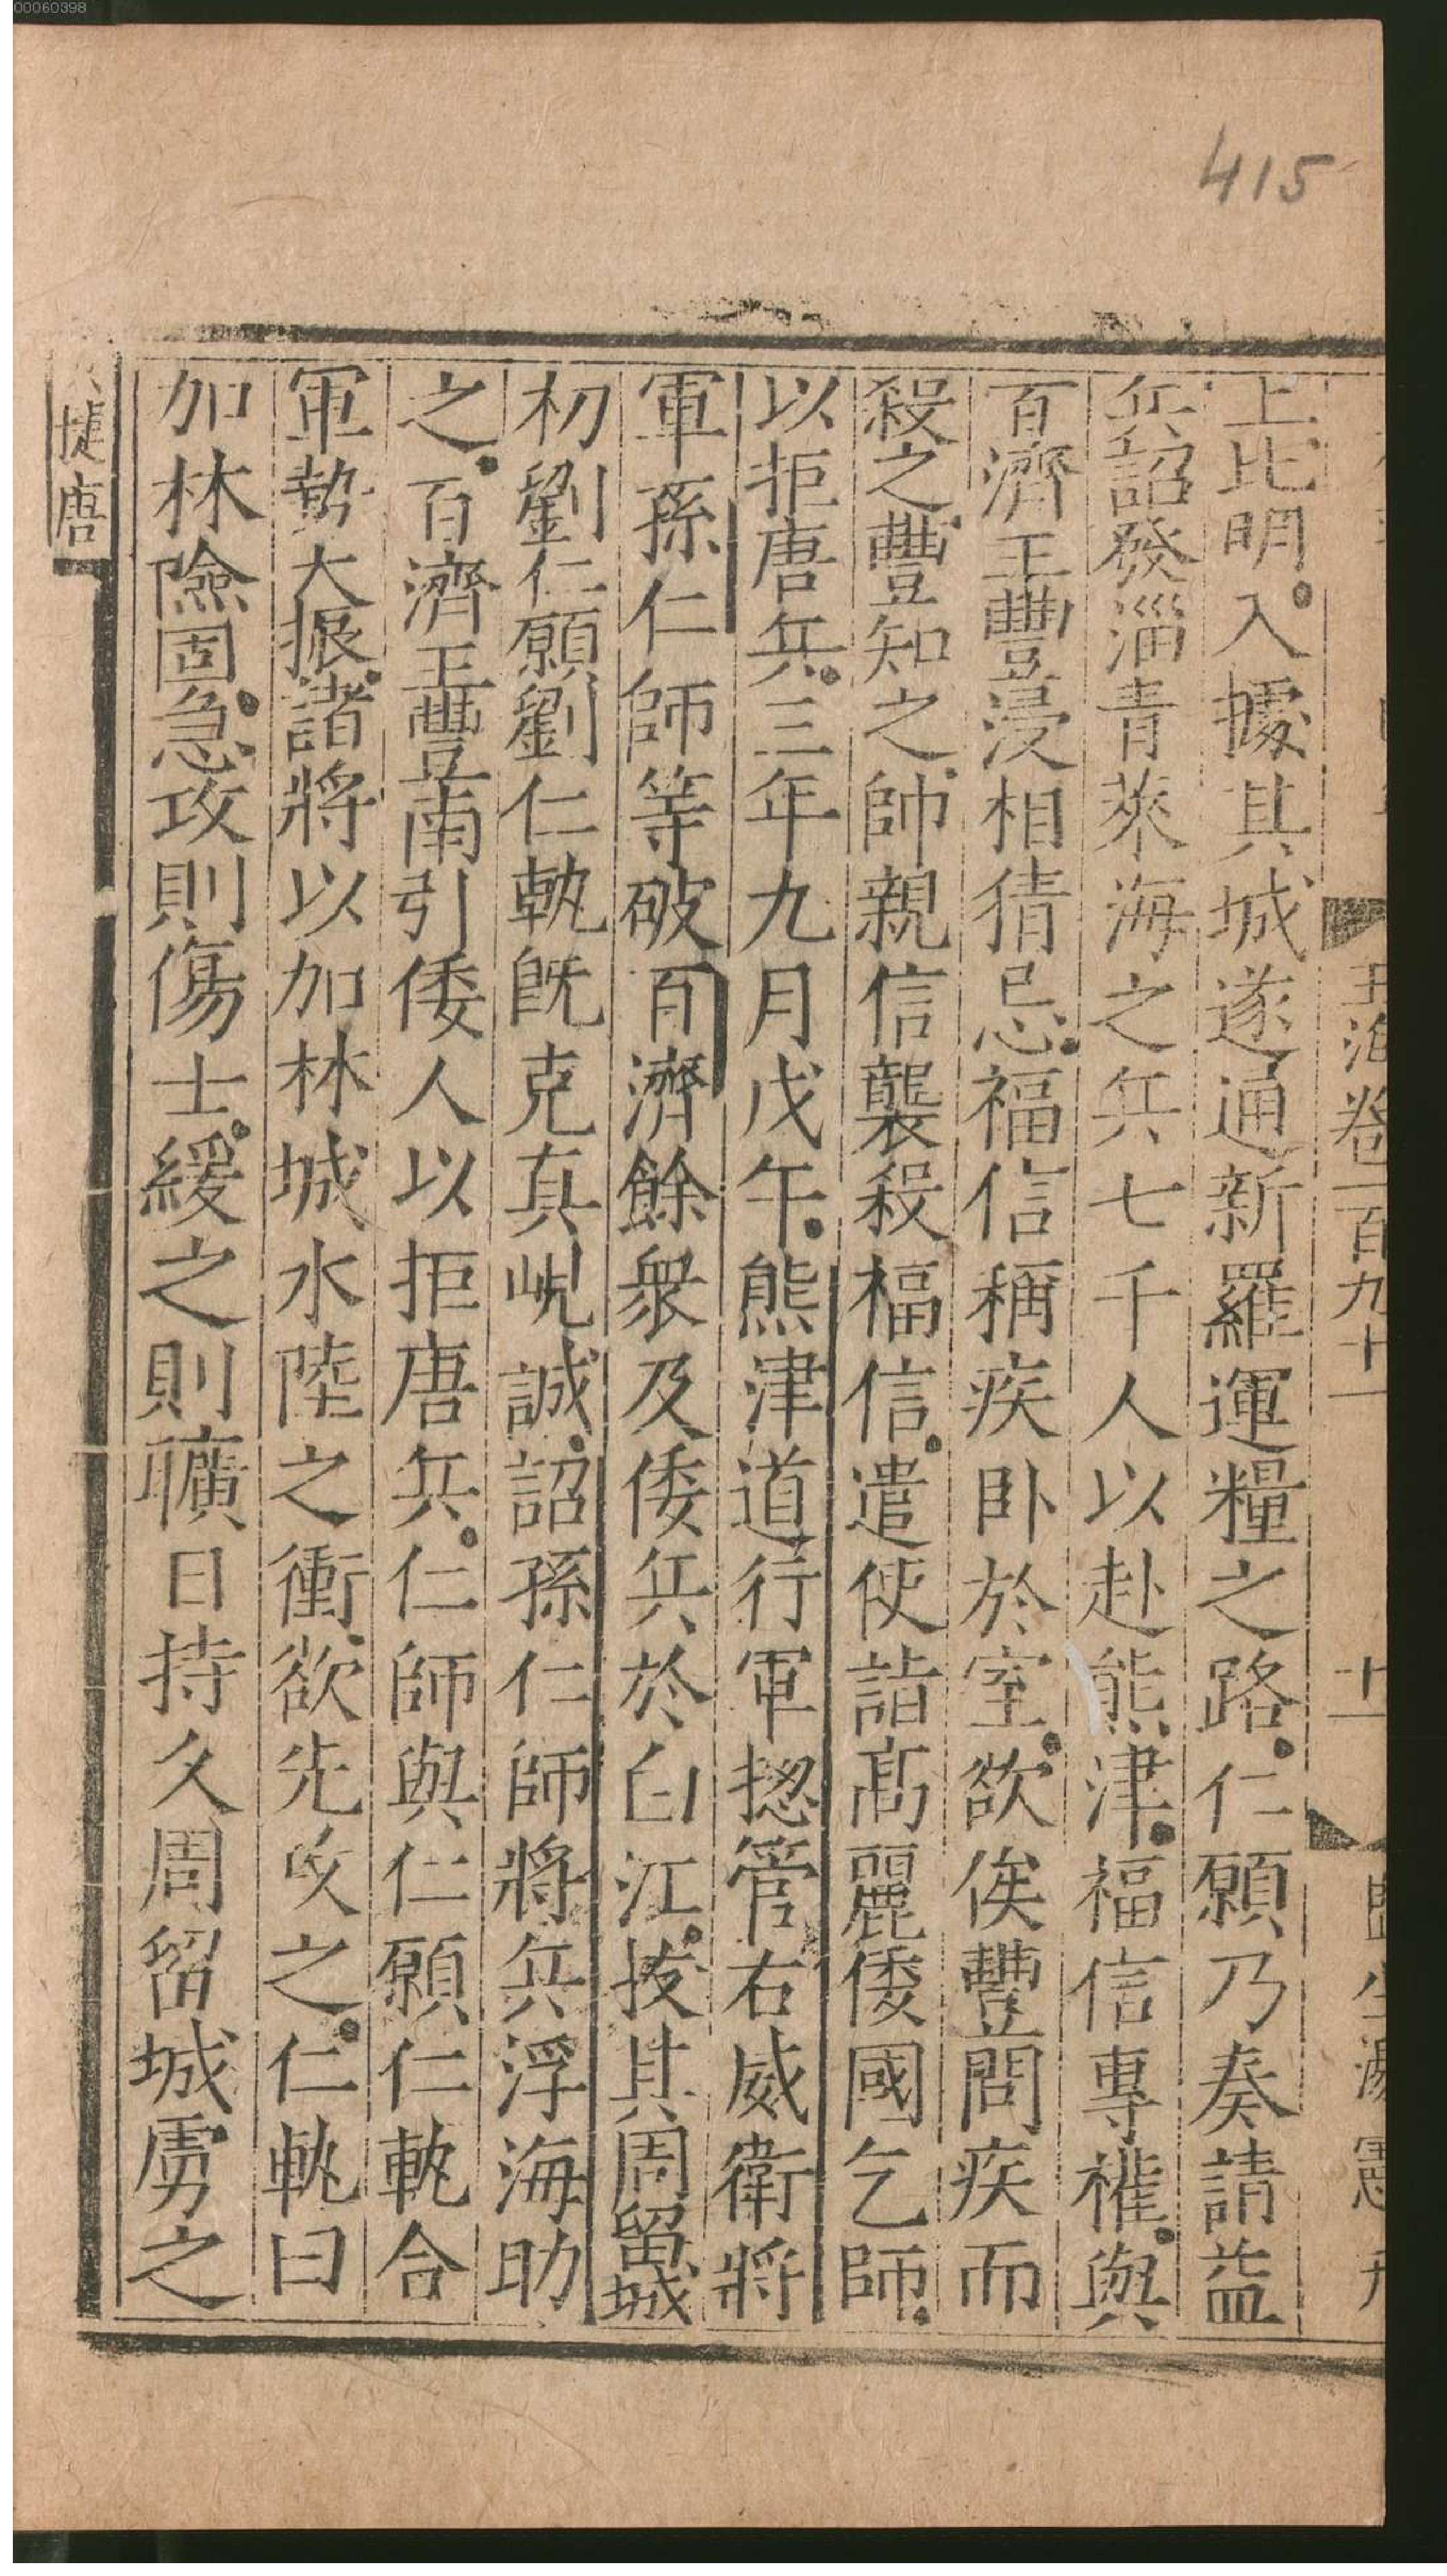 00060398
415
玉海卷一百九十一
十一
上比明入據其城遂通新羅運糧之路仁願乃奏請益
兵詔發淄青萊海之兵七千人以赴熊津福信專權與
百濟王豐浸相猜忌福信稱疾卧於室欲俟豐問疾而
殺之豐知之帥親信襲殺福信遣使詣髙麗倭國乞師
以拒唐兵三年九月戊午熊津道行軍揔管右威衛將
軍孫仁師等破百濟餘衆及倭兵於白江拔其周留城
初劉仁願劉仁軌旣克真峴城詔孫仁師將兵浮海助
之百濟王豐南引倭人以拒唐兵仁師與仁願仁軌合
軍勢大振諸將以加林城水陸之衝欲先攻之仁軌曰
加林險固急攻則傷士緩之則曠日持久周留城虜之
捷唐